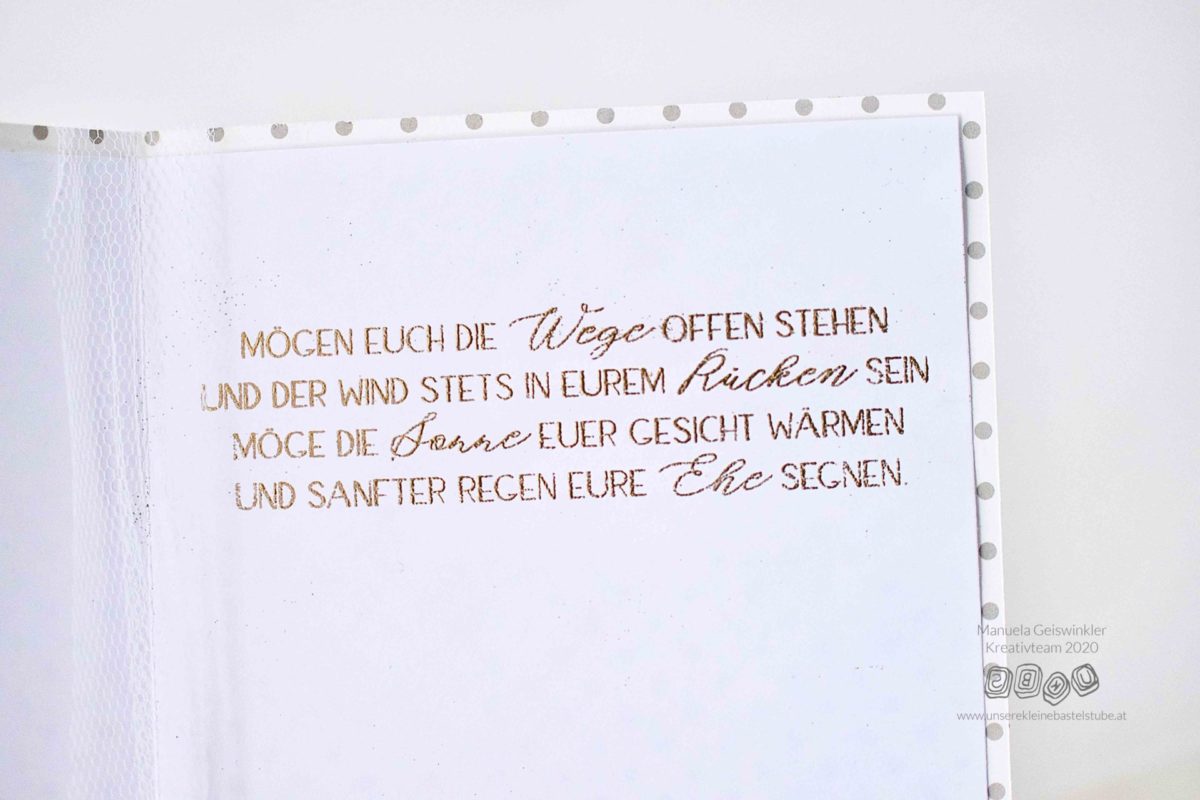 MÖGEN EUCH DIE Wege OFFEN STEHEN
UND DER WIND STETS IN EUREM Rücken SEIN
MÖGE DIE Sonne EUER GESICHT WÄRMEN
UND SANFTER REGEN EURE Ehe SEGNEN.
Manuela Geiswinkler
Kreativteam 2020
UKBS
www.unserekleinebastelstube.at